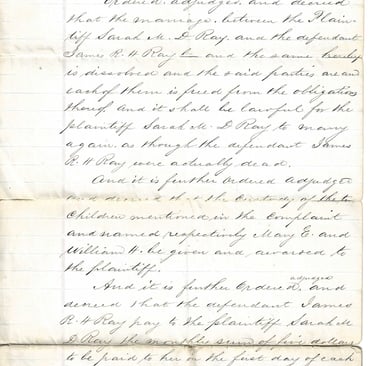 Ordered, adjudged, and decreed
that the marriage between the Plain-
tiff Sarah M. D. Ray, and the defendant
James R. H Ray be and the same hereby
is, dissolved and the said parties are and
each of them is freed from the obligations
thereof. And it shall be lawful for the
plaintiff Sarah M. D Ray to marry
again as though the defendant James
R. H Ray were actually dead.
And it is further Ordered Adjudged
and decreed that the Custody of the
Children mentioned in the Complaint
and named respectively Mary E. and
William H. be given and awarded to
the plaintiff.
And it is further Ordered, adjudged and
decreed that the defendant James
R. H Ray pay to the plaintiff Sarah M.
D Ray the monthly sum of five dollars
to be paid to her on the first day of each